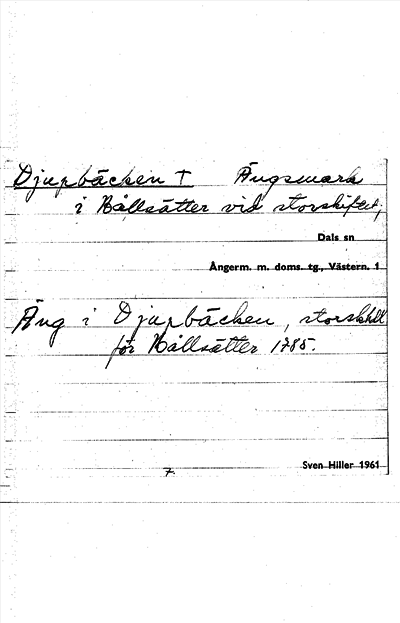 Djupbäcken † Ängsmark
i Hållsätter vid storskiftet;
Dals sn
Ångerm. m. doms. tg., Västern. 1
Äng i Djupbäcken, storskift
för Hållsätter 1785.
7.
Sven Hiller 1961